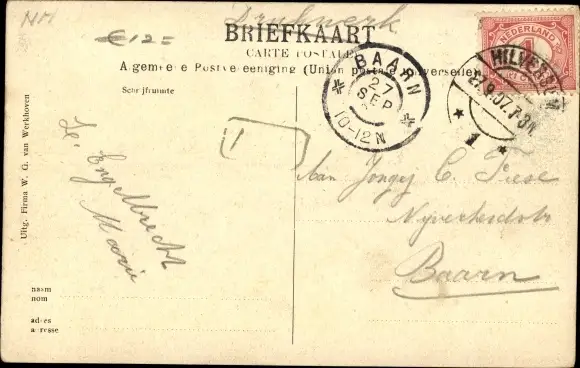 NH
Drukwerk
€ 12 =
BRIEFKAART
CARTE POSTALE
Algemeene Postvereeniging (Union postale universelle)
Schrijfruimte
NEDERLAND
1
HILVERSUM
27.9.07.7-8N
1
BAARN
27
SEP
10-12N
T
H. Engelbrecht
Marie
Aan Jongej C. Fiese
Baarn
naam
nom
adres
adresse
Uitg. Firma W. G. van Werkhoven